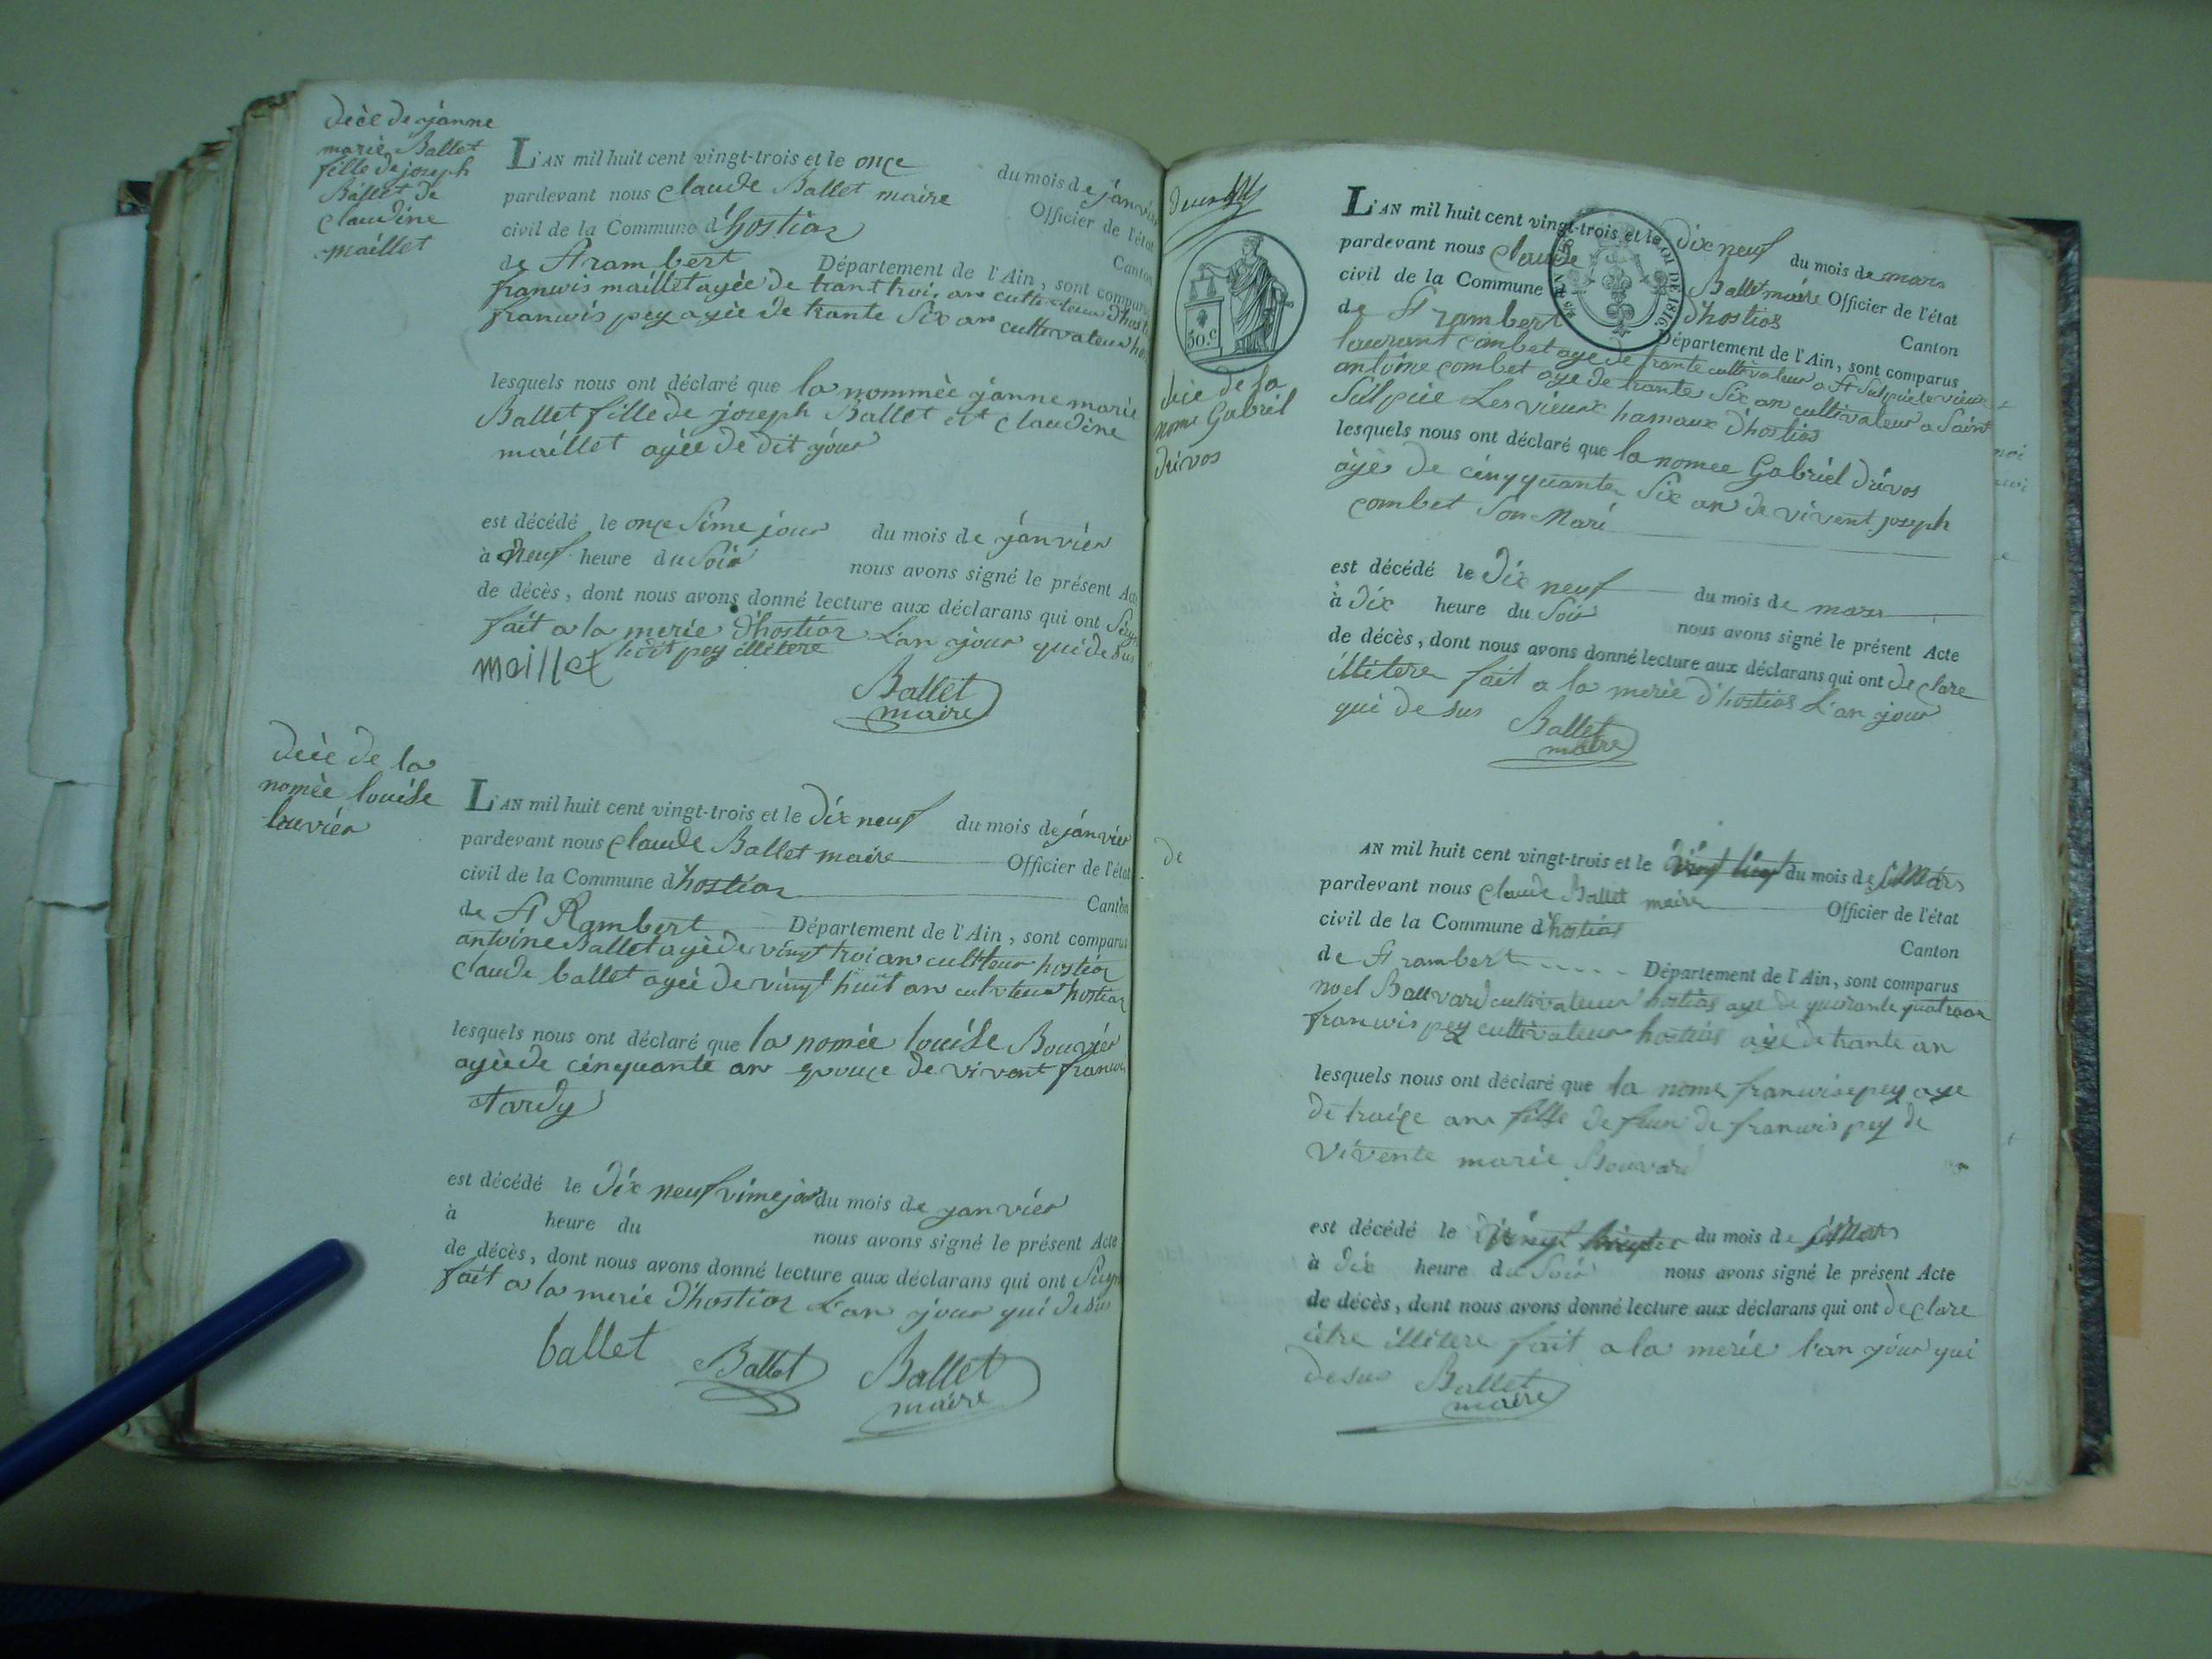 décè de janne
marie Ballet
fille de joseph
Ballet de
claudine
maillet
L'AN mil huit cent vingt-trois et le onçe du mois de janvier
pardevant nous claude Ballet maire Officier de l'état
civil de la Commune d'hostiaz Canton
de St rambert Département de l'Ain, sont comparus
franwis maillet agée de trant troi, an d'host
franwis pey agée de trante Six an cultivateur hos
lesquels nous ont déclaré que la nommèe janne marie
Ballet fille de joseph Ballet et claudine
maillet agée de dit jour
est décédé le onçe Sime jour du mois de janvier
à neuf heure du Soir nous avons signé le présent Acte
de décès, dont nous avons donné lecture aux déclarans qui ont Sign
fait a la merie d'hostiaz L'an jour qui de Sus
maillet pey illitere
Ballet
maire
décè de la
nomèe louise
bouvier
L'AN mil huit cent vingt-trois et le dix neuf du mois de janvier
pardevant nous claude Ballet maire Officier de l'état
civil de la Commune d'hostiaz Canton
de St Rambert Département de l'Ain, sont comparus
antoine Ballet agée de vingt troi an hostiaz
claude ballet agée de vingt huit an hostiaz
lesquels nous ont déclaré que la nomèe louise Bouvier
agée de cinquante an epouçe de vivent franwi
tardy
est décédé le dix neuf vime jour du mois de janvier
à heure du nous avons signé le présent Acte
de décès, dont nous avons donné lecture aux déclarans qui ont Sign
fait a la merie d'hostiaz L'an jour qui de Sus
ballet Ballet Ballet
maire
50.C
décè de la
nome Gabriel
drivos
LOI DE 1816.
L'AN mil huit cent vingt-trois et le dix neuf du mois de mars
pardevant nous claude Ballet maire Officier de l'état
civil de la Commune d'hostias Canton
de St rambert Département de l'Ain, sont comparus
laurant combet age de trante cultivateur a St Sulpice le vieux
antoine combet age de trante Six an cultivateur a Saint
Sulpice Les vieux hamaux d'hostias
lesquels nous ont déclaré que la nomee Gabriel drivos
àgé de cinqquante Six an de vivent joseph
combet Son Mari
est décédé le dix neuf du mois de mars
à dix heure du Soir nous avons signé le présent Acte
de décès, dont nous avons donné lecture aux déclarans qui ont declare
illitere fait a la merie d'hostias L'an jour
qui de sus Ballet
maire
de
AN mil huit cent vingt-trois et le du mois de Mars
pardevant nous claude Ballet maire Officier de l'état
civil de la Commune d'hostias Canton
de St rambert Département de l'Ain, sont comparus
noel cultivateur hostias age de quarante quatre an
franwis pey cultivateur hostias agé de trante an
lesquels nous ont déclaré que la nome franwise pey age
de traiçe ans fille de feun de franwis pey de
vivente marie Bouvard
est décédé le du mois de Mars
à dix heure du Soir nous avons signé le présent Acte
de décès, dont nous avons donné lecture aux déclarans qui ont declare
être illitere fait a la merie l'an jour qui
desus Ballet
maire